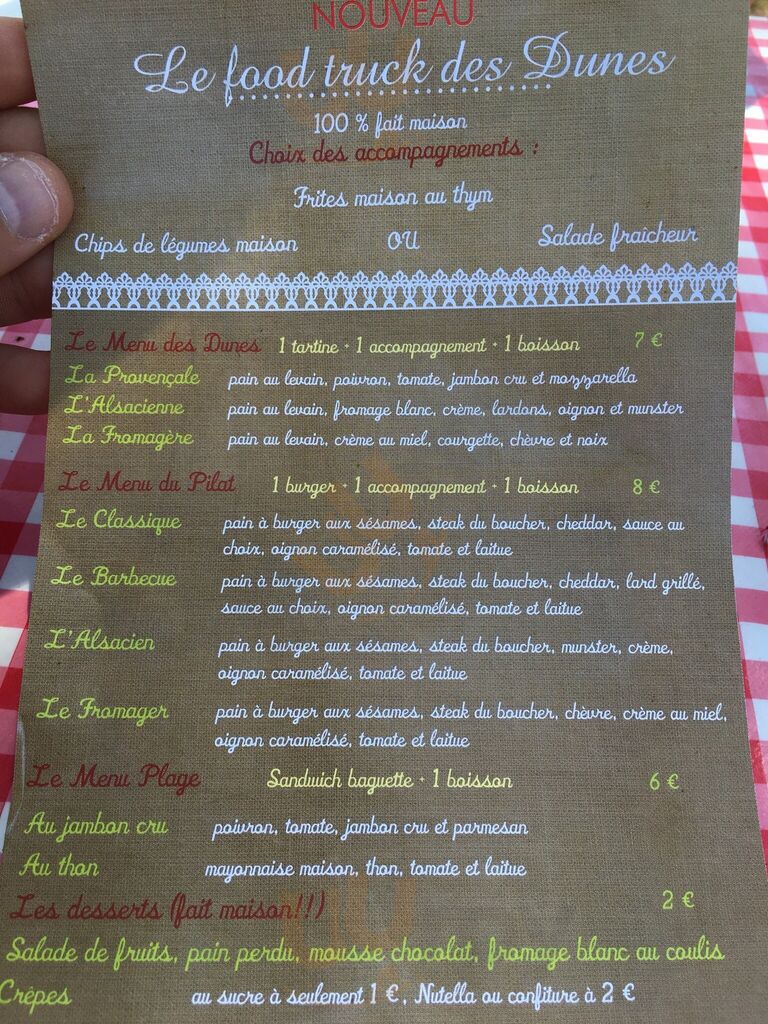 NOUVEAU
Le food truck des Dunes
100 % fait maison
Choix des accompagnements :
Frites maison au thym
Chips de légumes maison OU Salade fraicheur
Le Menu des Dunes 1 tartine + 1 accompagnement + 1 boisson 7 €
La Provençale pain au levain, poivron, tomate, jambon cru et mozzarella
L'Alsacienne pain au levain, fromage blanc, crème, lardons, oignon et munster
La Fromagère pain au levain, crème au miel, courgette, chèvre et noix
Le Menu du Pilat 1 burger + 1 accompagnement + 1 boisson 8 €
Le Classique pain à burger aux sésames, steak du boucher, cheddar, sauce au
choix, oignon caramélisé, tomate et laitue
Le Barbecue pain à burger aux sésames, steak du boucher, cheddar, lard grillé,
sauce au choix, oignon caramélisé, tomate et laitue
L'Alsacien pain à burger aux sésames, steak du boucher, munster, crème,
oignon caramélisé, tomate et laitue
Le Fromager pain à burger aux sésames, steak du boucher, chèvre, crème au miel,
oignon caramélisé, tomate et laitue
Le Menu Plage Sandwich baguette + 1 boisson 6 €
Au jambon cru poivron, tomate, jambon cru et parmesan
Au thon mayonnaise maison, thon, tomate et laitue
Les desserts (fait maison!!!) 2 €
Salade de fruits, pain perdu, mousse chocolat, fromage blanc au coulis
Crêpes au sucre à seulement 1 €, Nutella ou confiture à 2 €